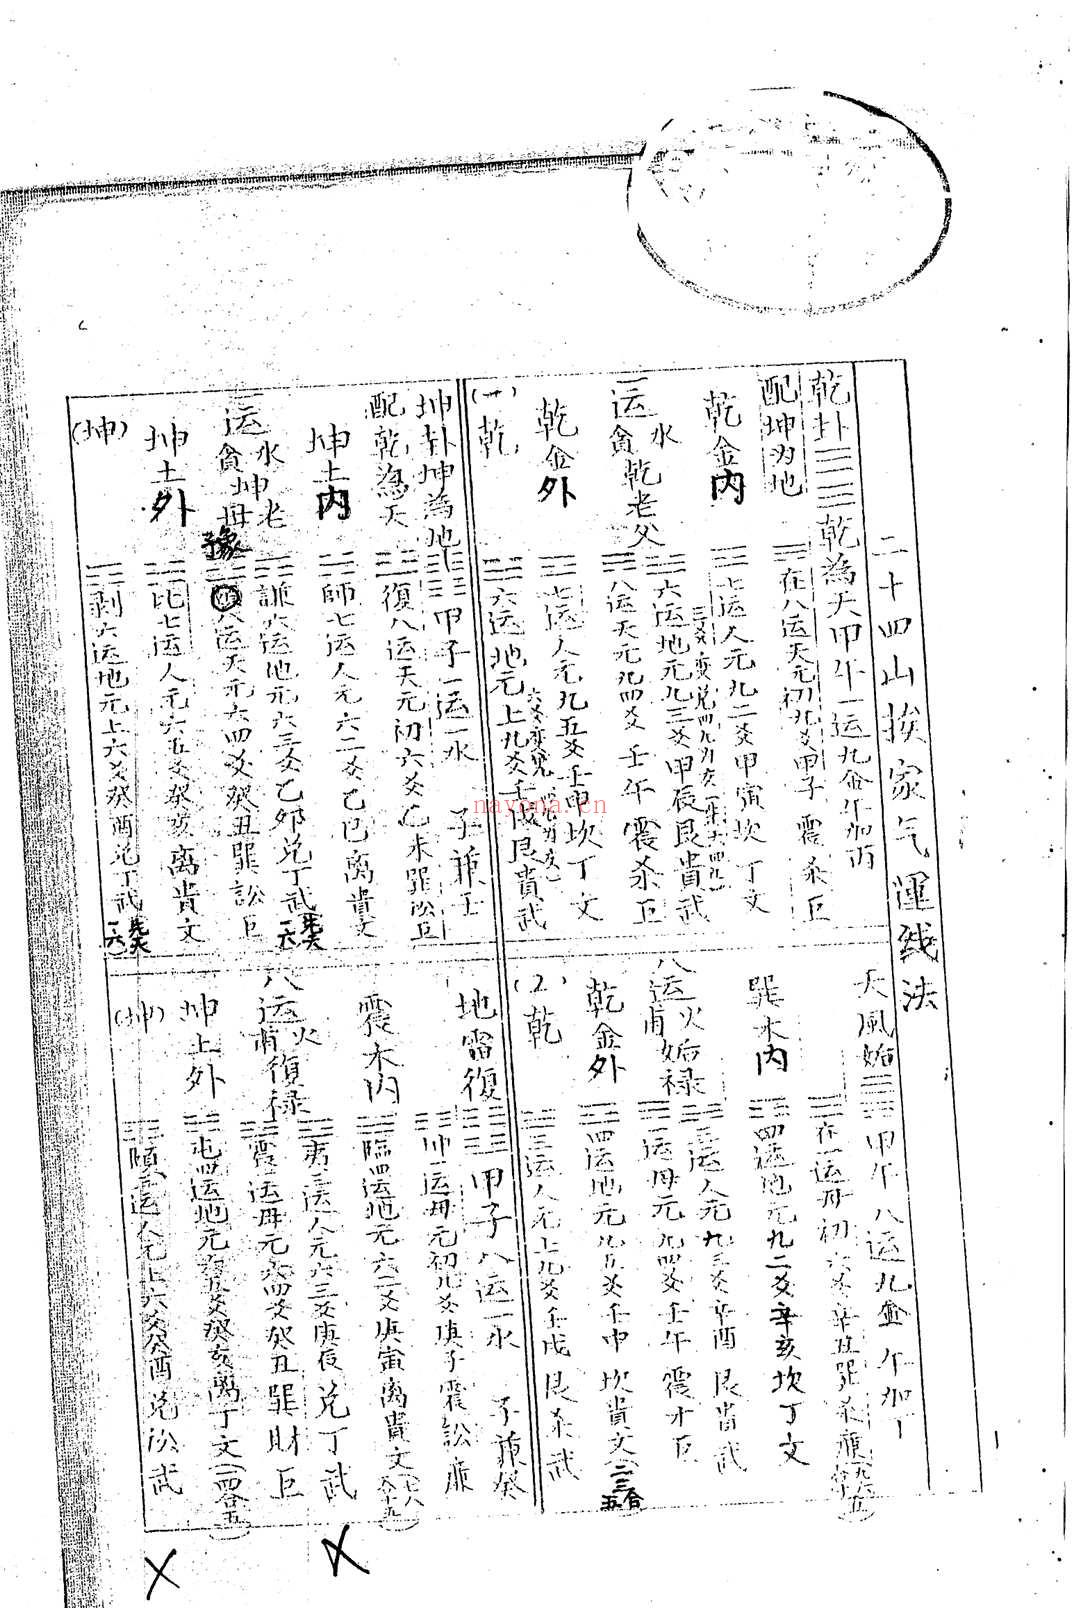 二十四山挨家气運线法
乾卦 乾為天甲午一运九金午加丙
配坤为地
在八运天元初九爻甲子 震杀巨
乾金内
七运人元九二爻甲寅坎丁文
六运地元九三爻甲辰艮貴武
一运貪乾老父
水
八运天元九四爻壬午震杀巨
乾金外
七运人元九五爻壬申坎丁文
(一)乾
六运地元上九爻壬戌艮貴武
坤卦坤為地
甲子一运一水 子兼壬
配乾為天
復八运天元初六爻乙未巽訟巨
坤土内
師七运人元六二爻乙巳离貴文
謙六运地元六三爻乙卯兑丁武
一运貪坤母
水坤老
豫
八运天元六四爻癸丑巽訟巨
坤土外
比七运人元六五爻癸亥离貴文
(坤)
剥六运地元上六爻癸酉兑丁武
天風姤
甲午八运九金 午加丁
在一运母初六爻辛丑巽杀廉
巽木内
四运地元九二爻辛亥坎丁文
三运人元九三爻辛酉艮貴武
八运甫姤禄
火
一运母元九四爻壬午震才巨
乾金外
四运地元九五爻壬申坎貴文(二三合五)
(2)乾
三运人元上九爻壬戌艮杀武
地雷復
甲子八运一水 子兼癸
坤一运母元初九爻庚子震訟廉
震木内
臨四运地元六二爻庚寅离貴文
夷三运人元六三爻庚辰兑丁武
八运甫復禄
火
震一运母元六四爻癸丑巽財巨
坤土外
屯四运地元九五爻癸亥离丁文(一四合五)
(坤)
頤三运人元上六爻癸酉兑訟武
nayona.cn